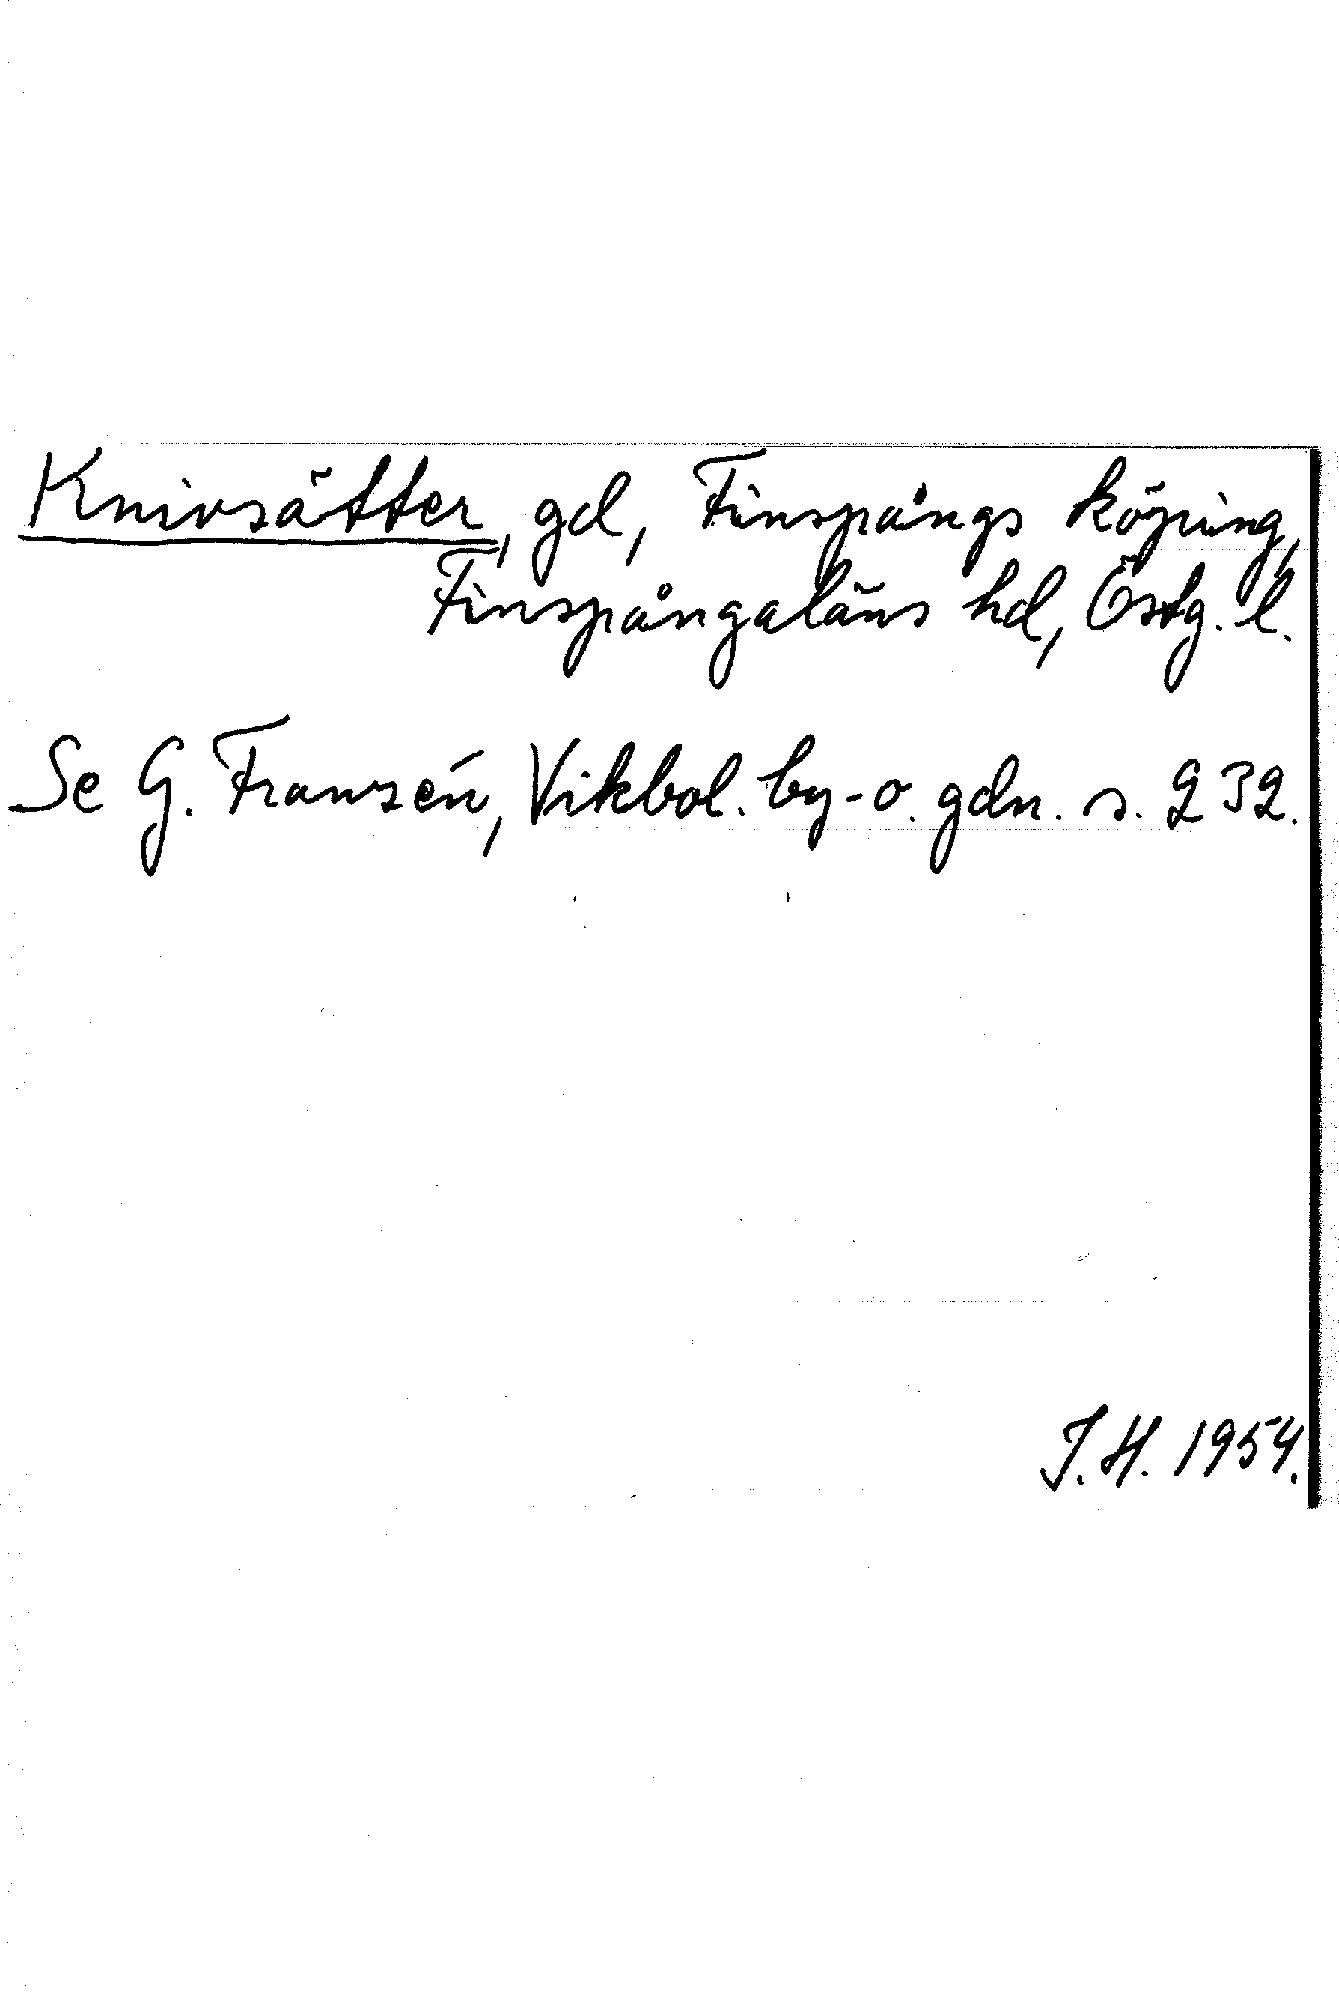 Knivsätter, gd, Finspångs köping,
Finspångaläns hd, Östg. l.
Se G. Franzén, Vikbol. by- o. gdn. s. 232.
J. H. 1954.